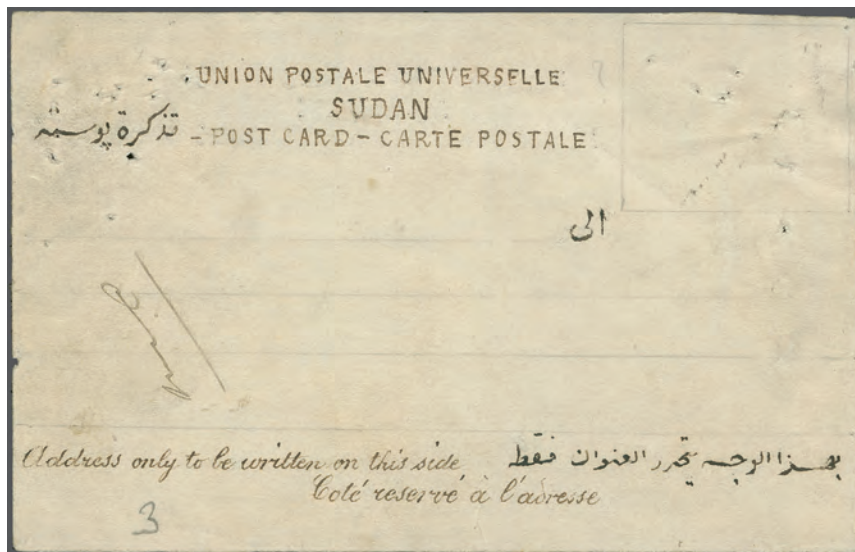 UNION POSTALE UNIVERSELLE
SUDAN
تذكرة پوسته - POST CARD - CARTE POSTALE
الى
Address only to be written on this side بهذا الوجه يتحرر العنوان فقط
Coté reservé à l'adresse
3